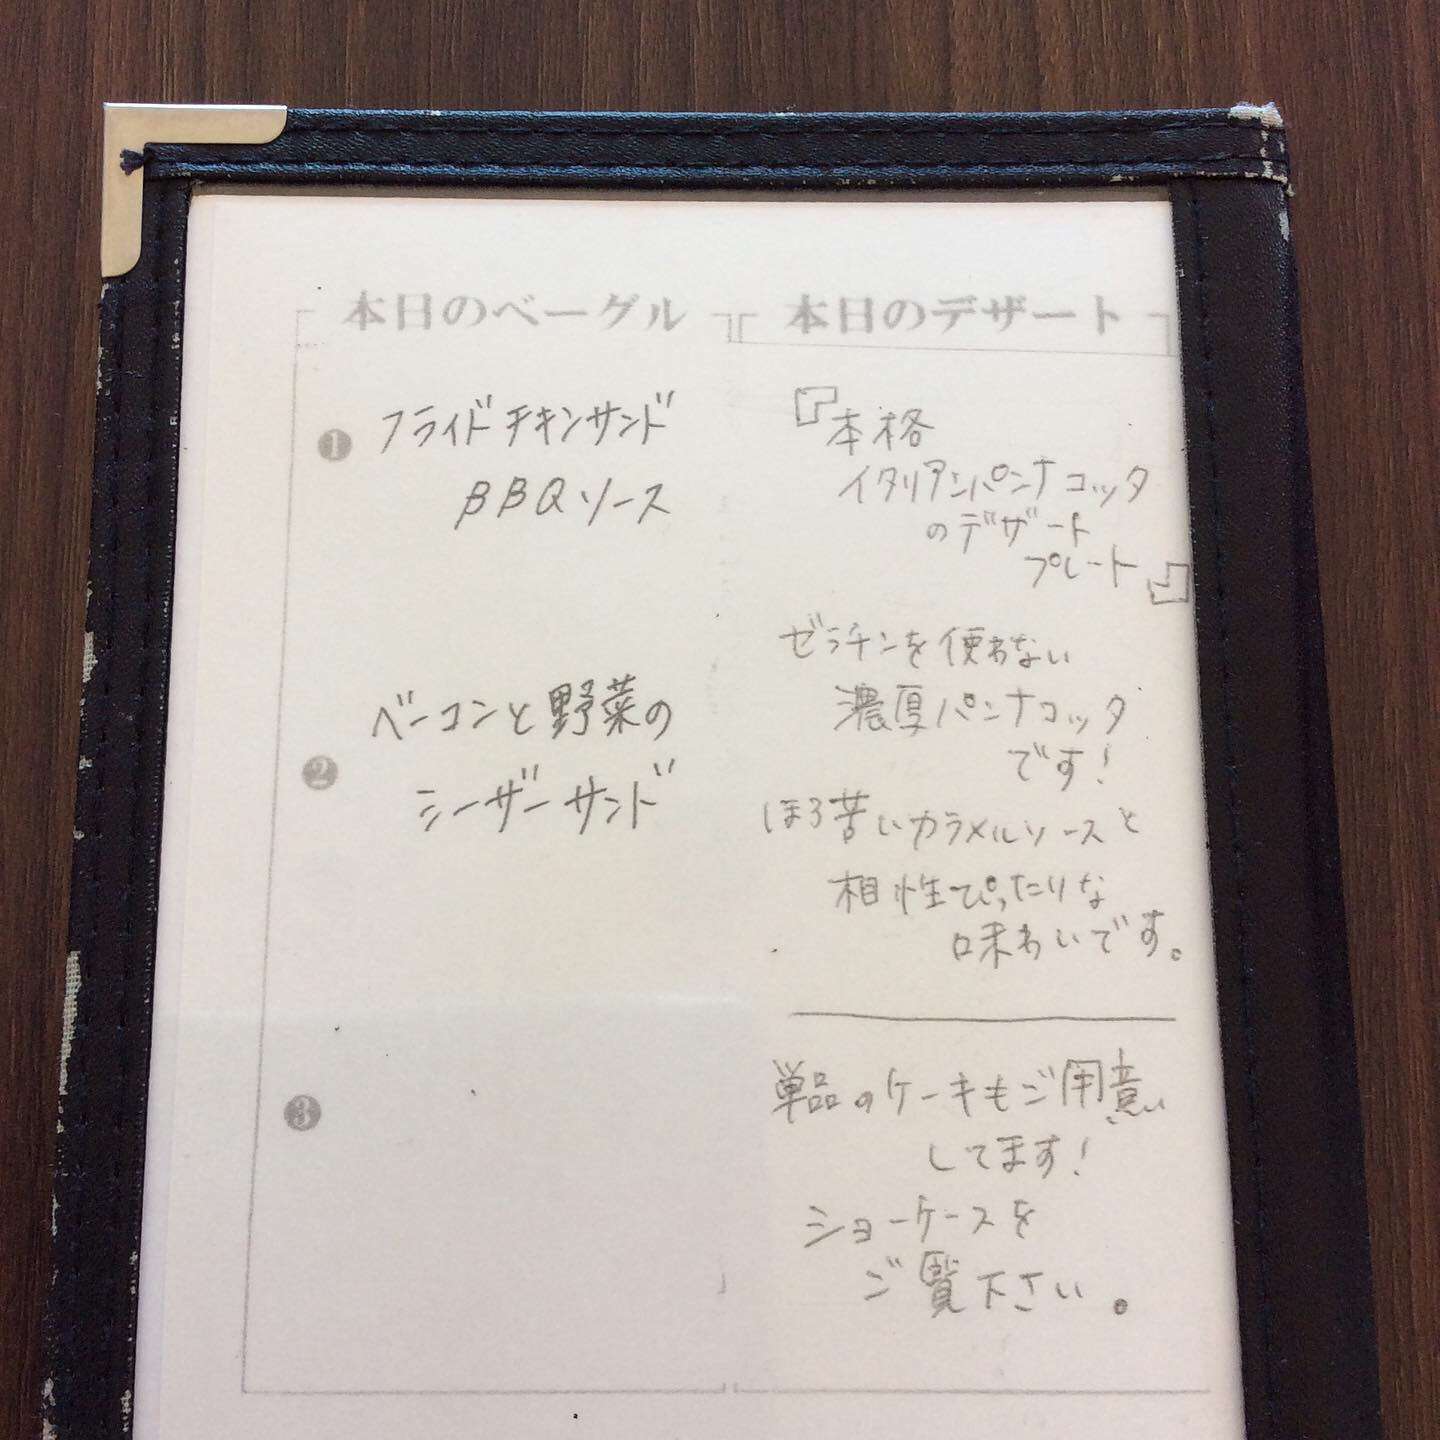 本日のベーグル
❶ フライドチキンサンド
BBQソース
❷ ベーコンと野菜の
シーザーサンド
❸
本日のデザート
『本格
イタリアンパンナコッタ
のデザート
プレート』
ゼラチンを使わない
濃厚パンナコッタ
です!
ほろ苦いカラメルソースと
相性ぴったりな
味わいです。
単品のケーキもご用意
してます!
ショーケースを
ご覧下さい。